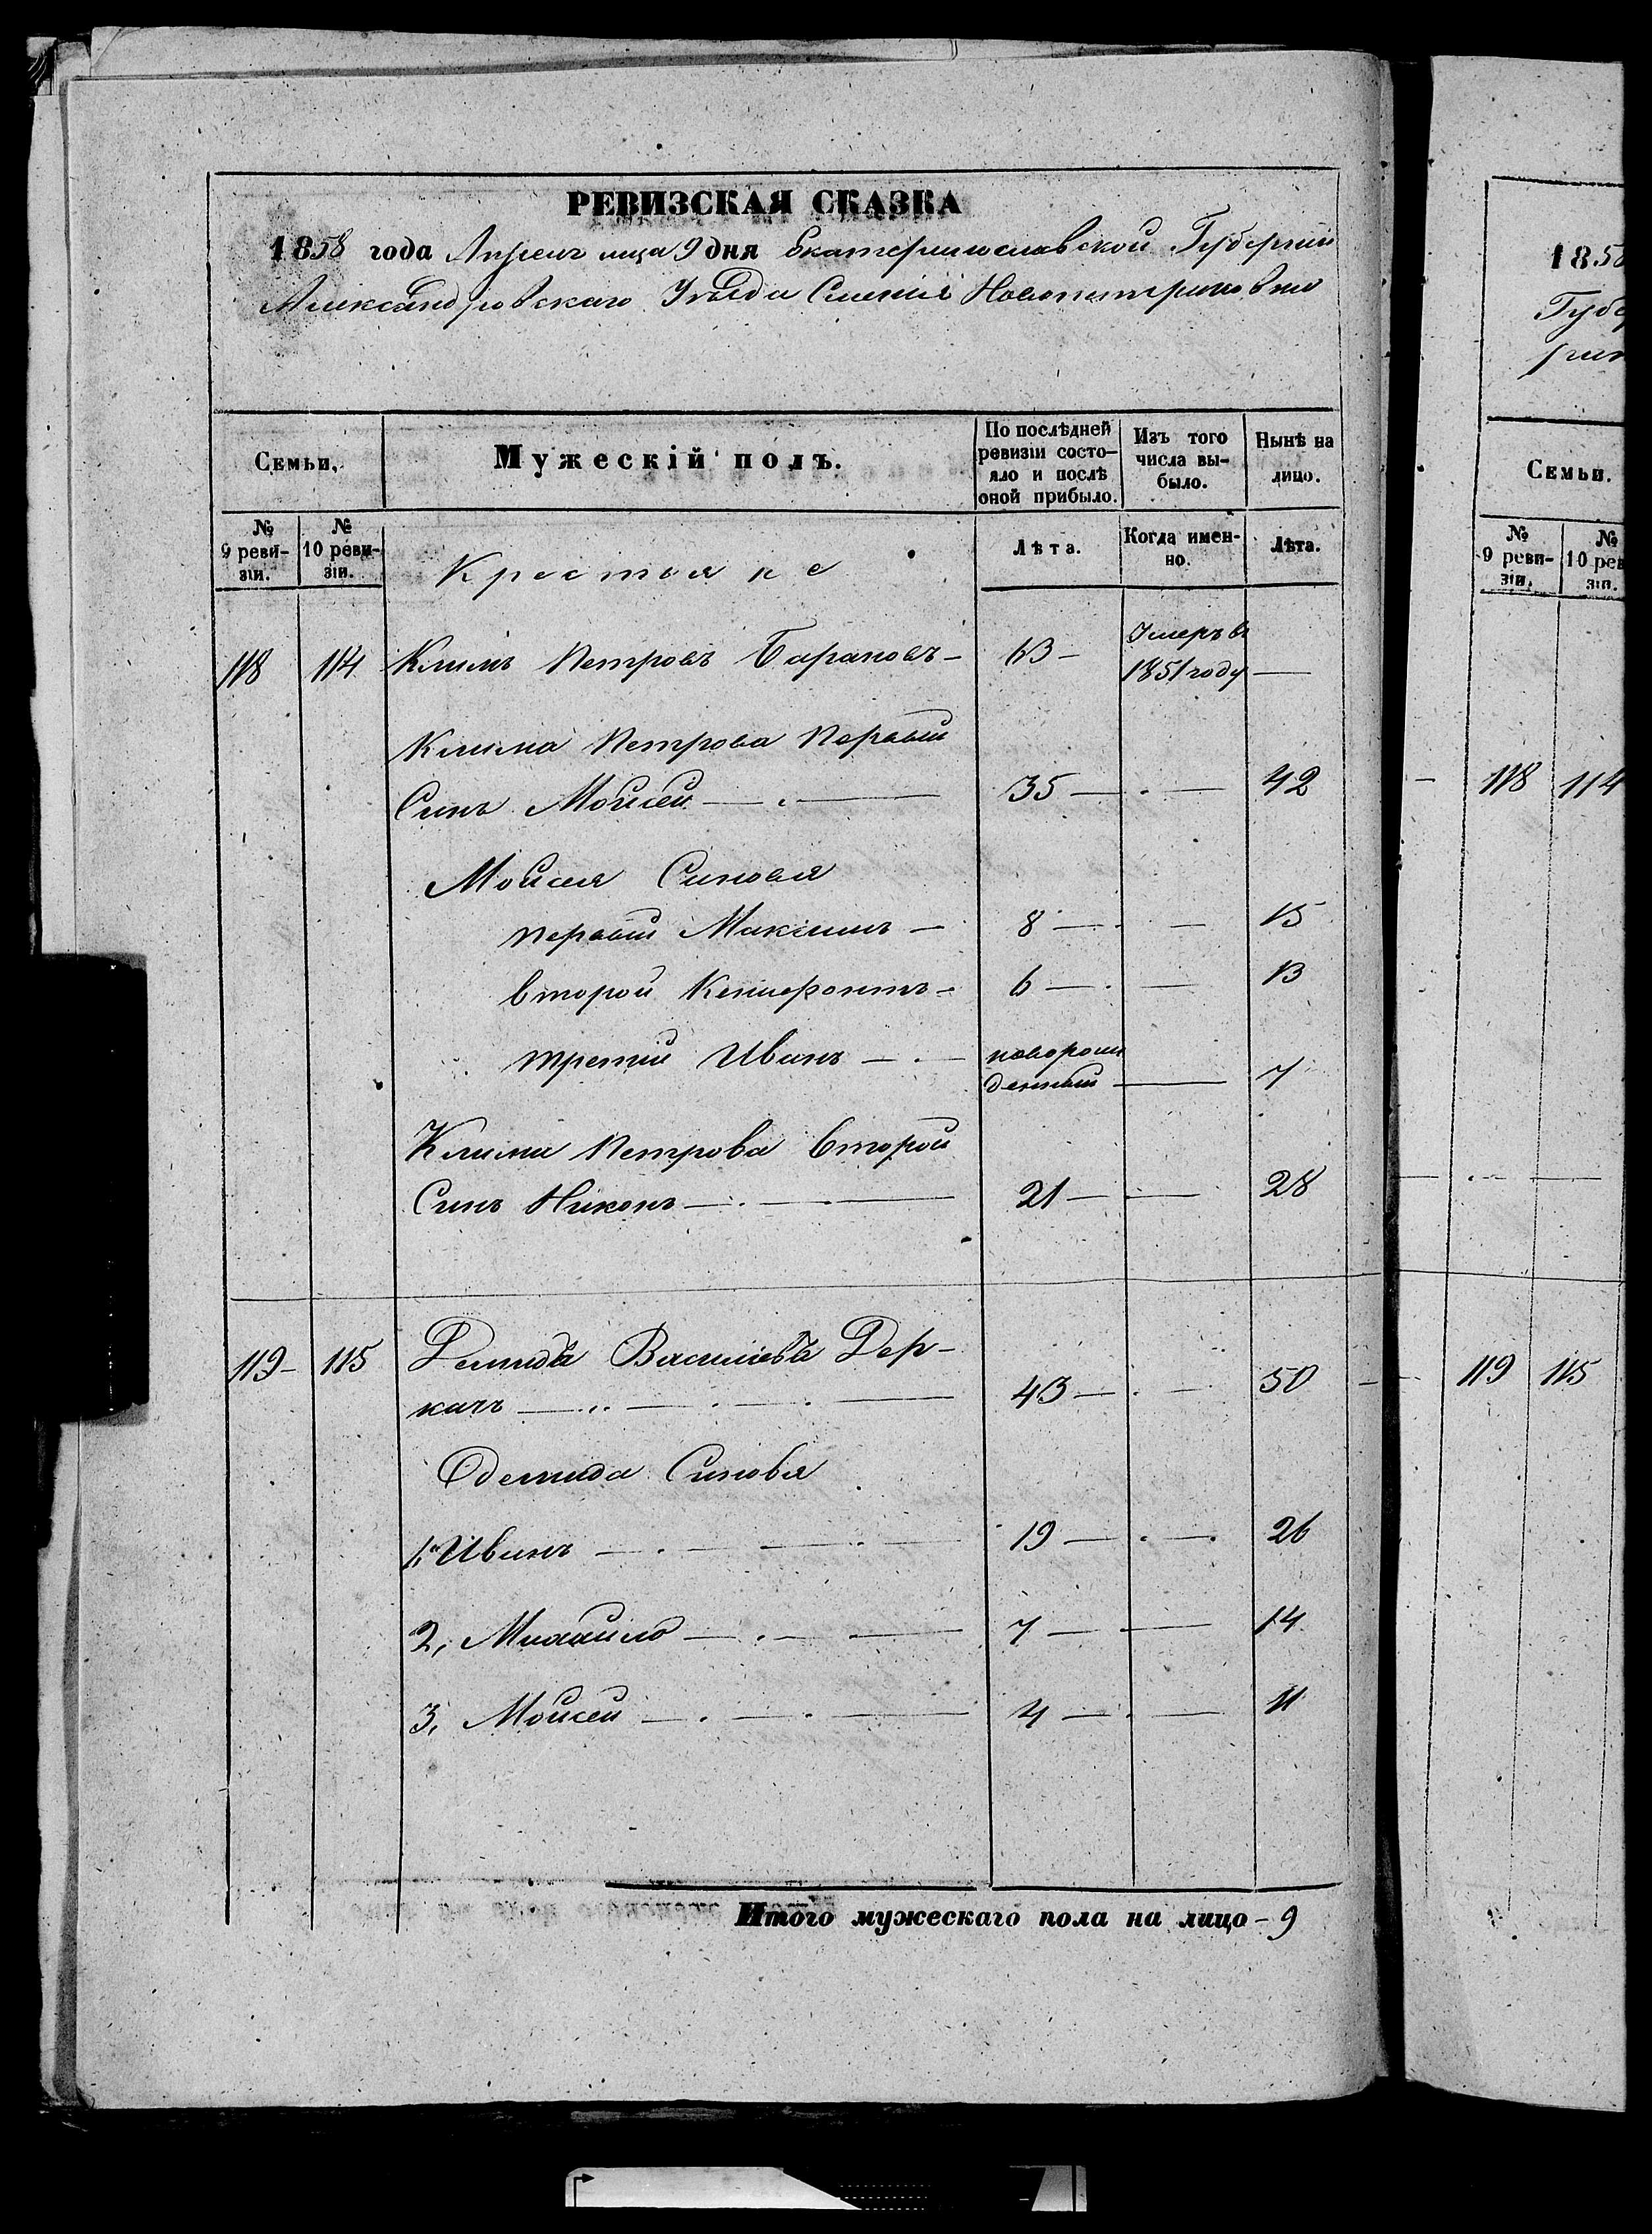 РЕВИЗСКАЯ СКАЗКА
1858 года Апреля мца 9 дня Екатеринославской Губерніи
Александровскаго Уѣзда Селенія
Семьи.
Мужескій полъ.
По послѣдней ревизіи состо-
яло и послѣ оной прибыло.
Изъ того числа вы-
было.
Нынѣ на лицо.
№ 9 реви-
зіи.
№ 10 реви-
зіи.
Крестьяне
Лѣта.
Когда имен-
но.
Лѣта.
118 114 Климъ Петровъ Барановъ — 63 — Умеръ въ
1851 году —
Клима Петрова Первый
Синъ Мойсей — 35 — — 42
Мойсея Синовья
первый Максимъ — 8 — — 15
второй — 6 — — 13
третий Иванъ — новорож
денный — 7
Клима Петрова второй
Синъ Никонъ — 21 — — 28
119 — 115 Демидъ Василіевъ Дер-
качъ — 43 — — 50
Демида Синовья
1, Иванъ — 19 — — 26
2, Михайло — 7 — — 14
3, Мойсей — 4 — — 11
Итого мужескаго пола на лицо — 9
1858
Губе
рин
Семьи.
№ 9 реви-
зіи.
№ 10 рев
зіи.
118 114
119 115